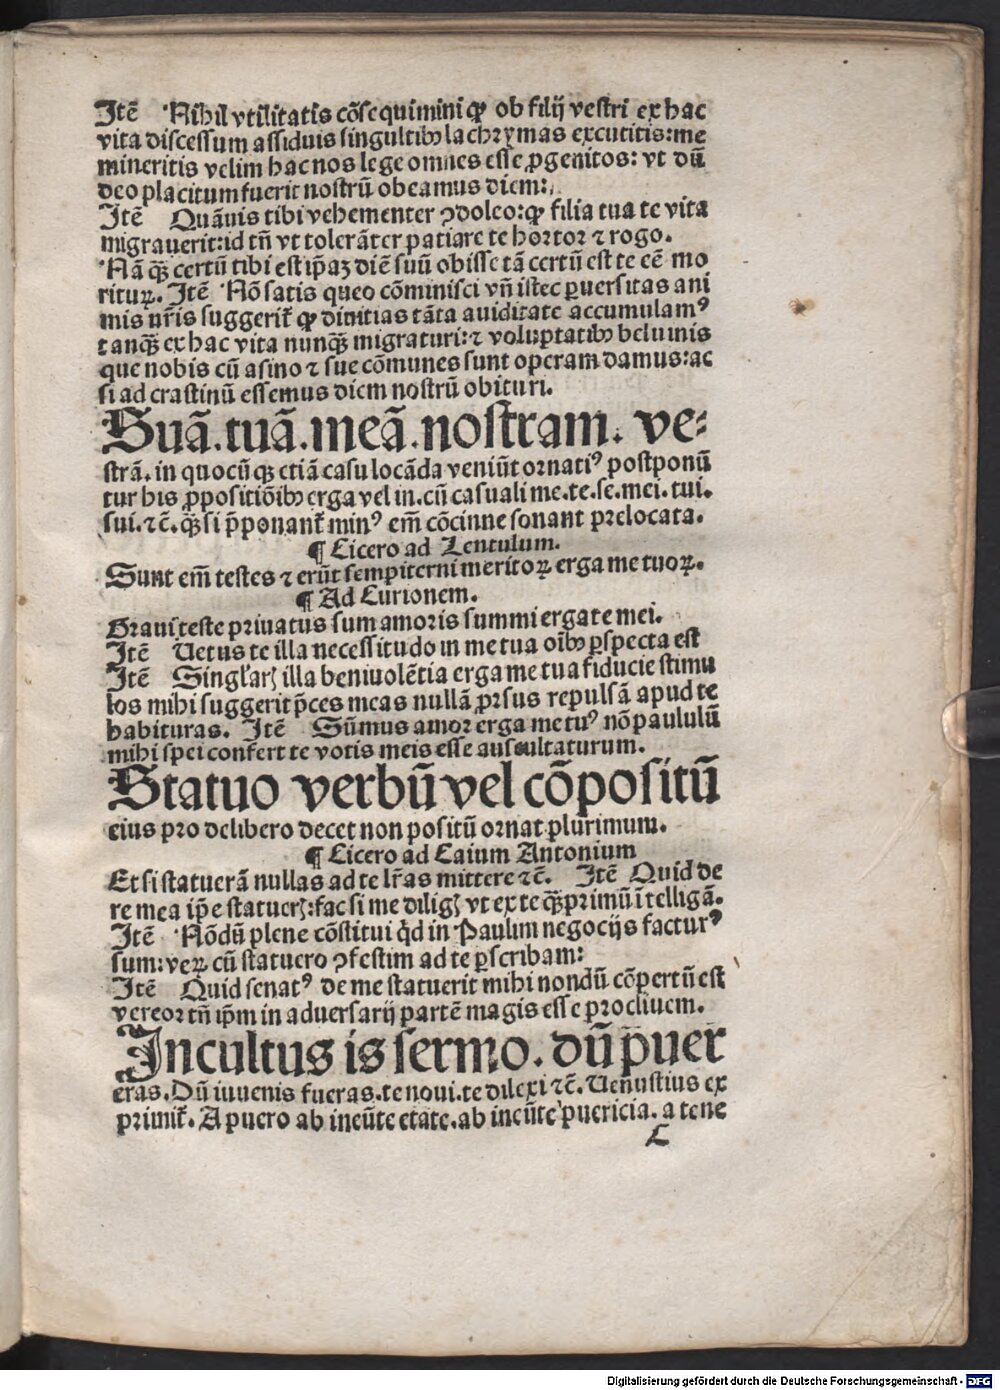 Itē Nihil vtilitatis cōsequimini ꝙ ob filij vestri ex hac
vita discessum assiduis singultibꝰ lachrymas excutitis: me
mineritis velim hac nos lege omnes esse ꝓgenitos: vt dū
deo placitum fuerit nostrū obeamus diem:
Itē Quāuis tibi vehementer ꝯdoleo: ꝙ filia tua te vita
migrauerit: id tñ vt tolerāter patiare te hortor ⁊ rogo.
Nā q̄ꝫ certū tibi est ip̄aꝫ diē suū obisse tā certū est te eē mo
rituꝝ. Itē Nō satis queo cōminisci vñ istec ꝑuersitas ani
mis nr̄is suggerit᷑ ꝙ diuitias tāta auiditate accumulamꝰ
tanq̄ꝫ ex hac vita nunq̄ꝫ migraturi: ⁊ voluptatibꝰ beluinis
que nobis cū asino ⁊ sue cōmunes sunt operam damus: ac
si ad crastinū essemus diem nostrū obituri.
Suā. tuā. meā. nostram. ve⸗
strā. in quocūqꝫ etiā casu locāda veniūt ornatiꝰ postponū
tur his ꝓpositiōibꝰ erga vel in. cū casuali me. te. se. mei. tui.
sui. ⁊c̄. q̄ꝫ si p̄ponant᷑ minꝰ em̄ cōcinne sonant prelocata.
¶ Cicero ad Lentulum.
Sunt em̄ testes ⁊ erūt sempiterni meritoꝝ erga me tuoꝝ.
¶ Ad Curionem.
Graui teste priuatus sum amoris summi erga te mei.
Itē Uetus te illa necessitudo in me tua oībꝰ ꝑspecta est
Itē Singl'arꝭ illa beniuolētia erga me tua fiducie stimu
los mihi suggerit p̄ces meas nullā ꝓrsus repulsā apud te
habituras. Itē Sūmus amor erga me tuꝰ nō paululū
mihi spei confert te votis meis esse auscultaturum.
Statuo verbū vel cōpositū
eius pro delibero decet non positū ornat plurimum.
¶ Cicero ad Caium Antonium
Etsi statuerā nullas ad te lr̄as mittere ⁊c̄. Itē Quid de
re mea ip̄e statuerꝭ: fac si me diligꝭ vt ex te q̄ꝫprimū ītelligā.
Itē Nōdū plene cōstitui qd̄ in Paulini negocijs facturꝰ
sum: veꝝ cū statuero ꝯfestim ad te ꝑscribam:
Itē Quid senatꝰ de me statuerit mihi nondū cōpertū est
vereor tñ ip̄m in aduersarij partē magis esse procliuem.
Incultus is sermo. dū puer
eras. Dū iuuenis fueras. te noui. te dilexi ⁊c̄. Uenustius ex
primit᷑. A puero ab ineūte etate. ab ineūte puericia. a tene
C
Digitalisierung gefördert durch die Deutsche Forschungsgemeinschaft - DFG